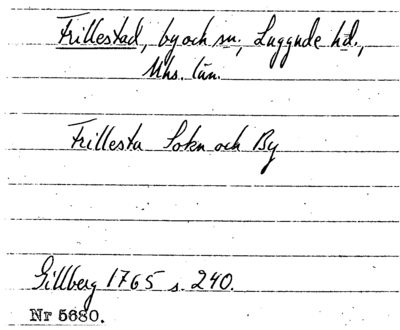 Frillestad, by och sn., Luggude hd.,
Mhs. län.
Frillesta Sokn och By
Gillberg 1765 s. 240.
Nr 5680.